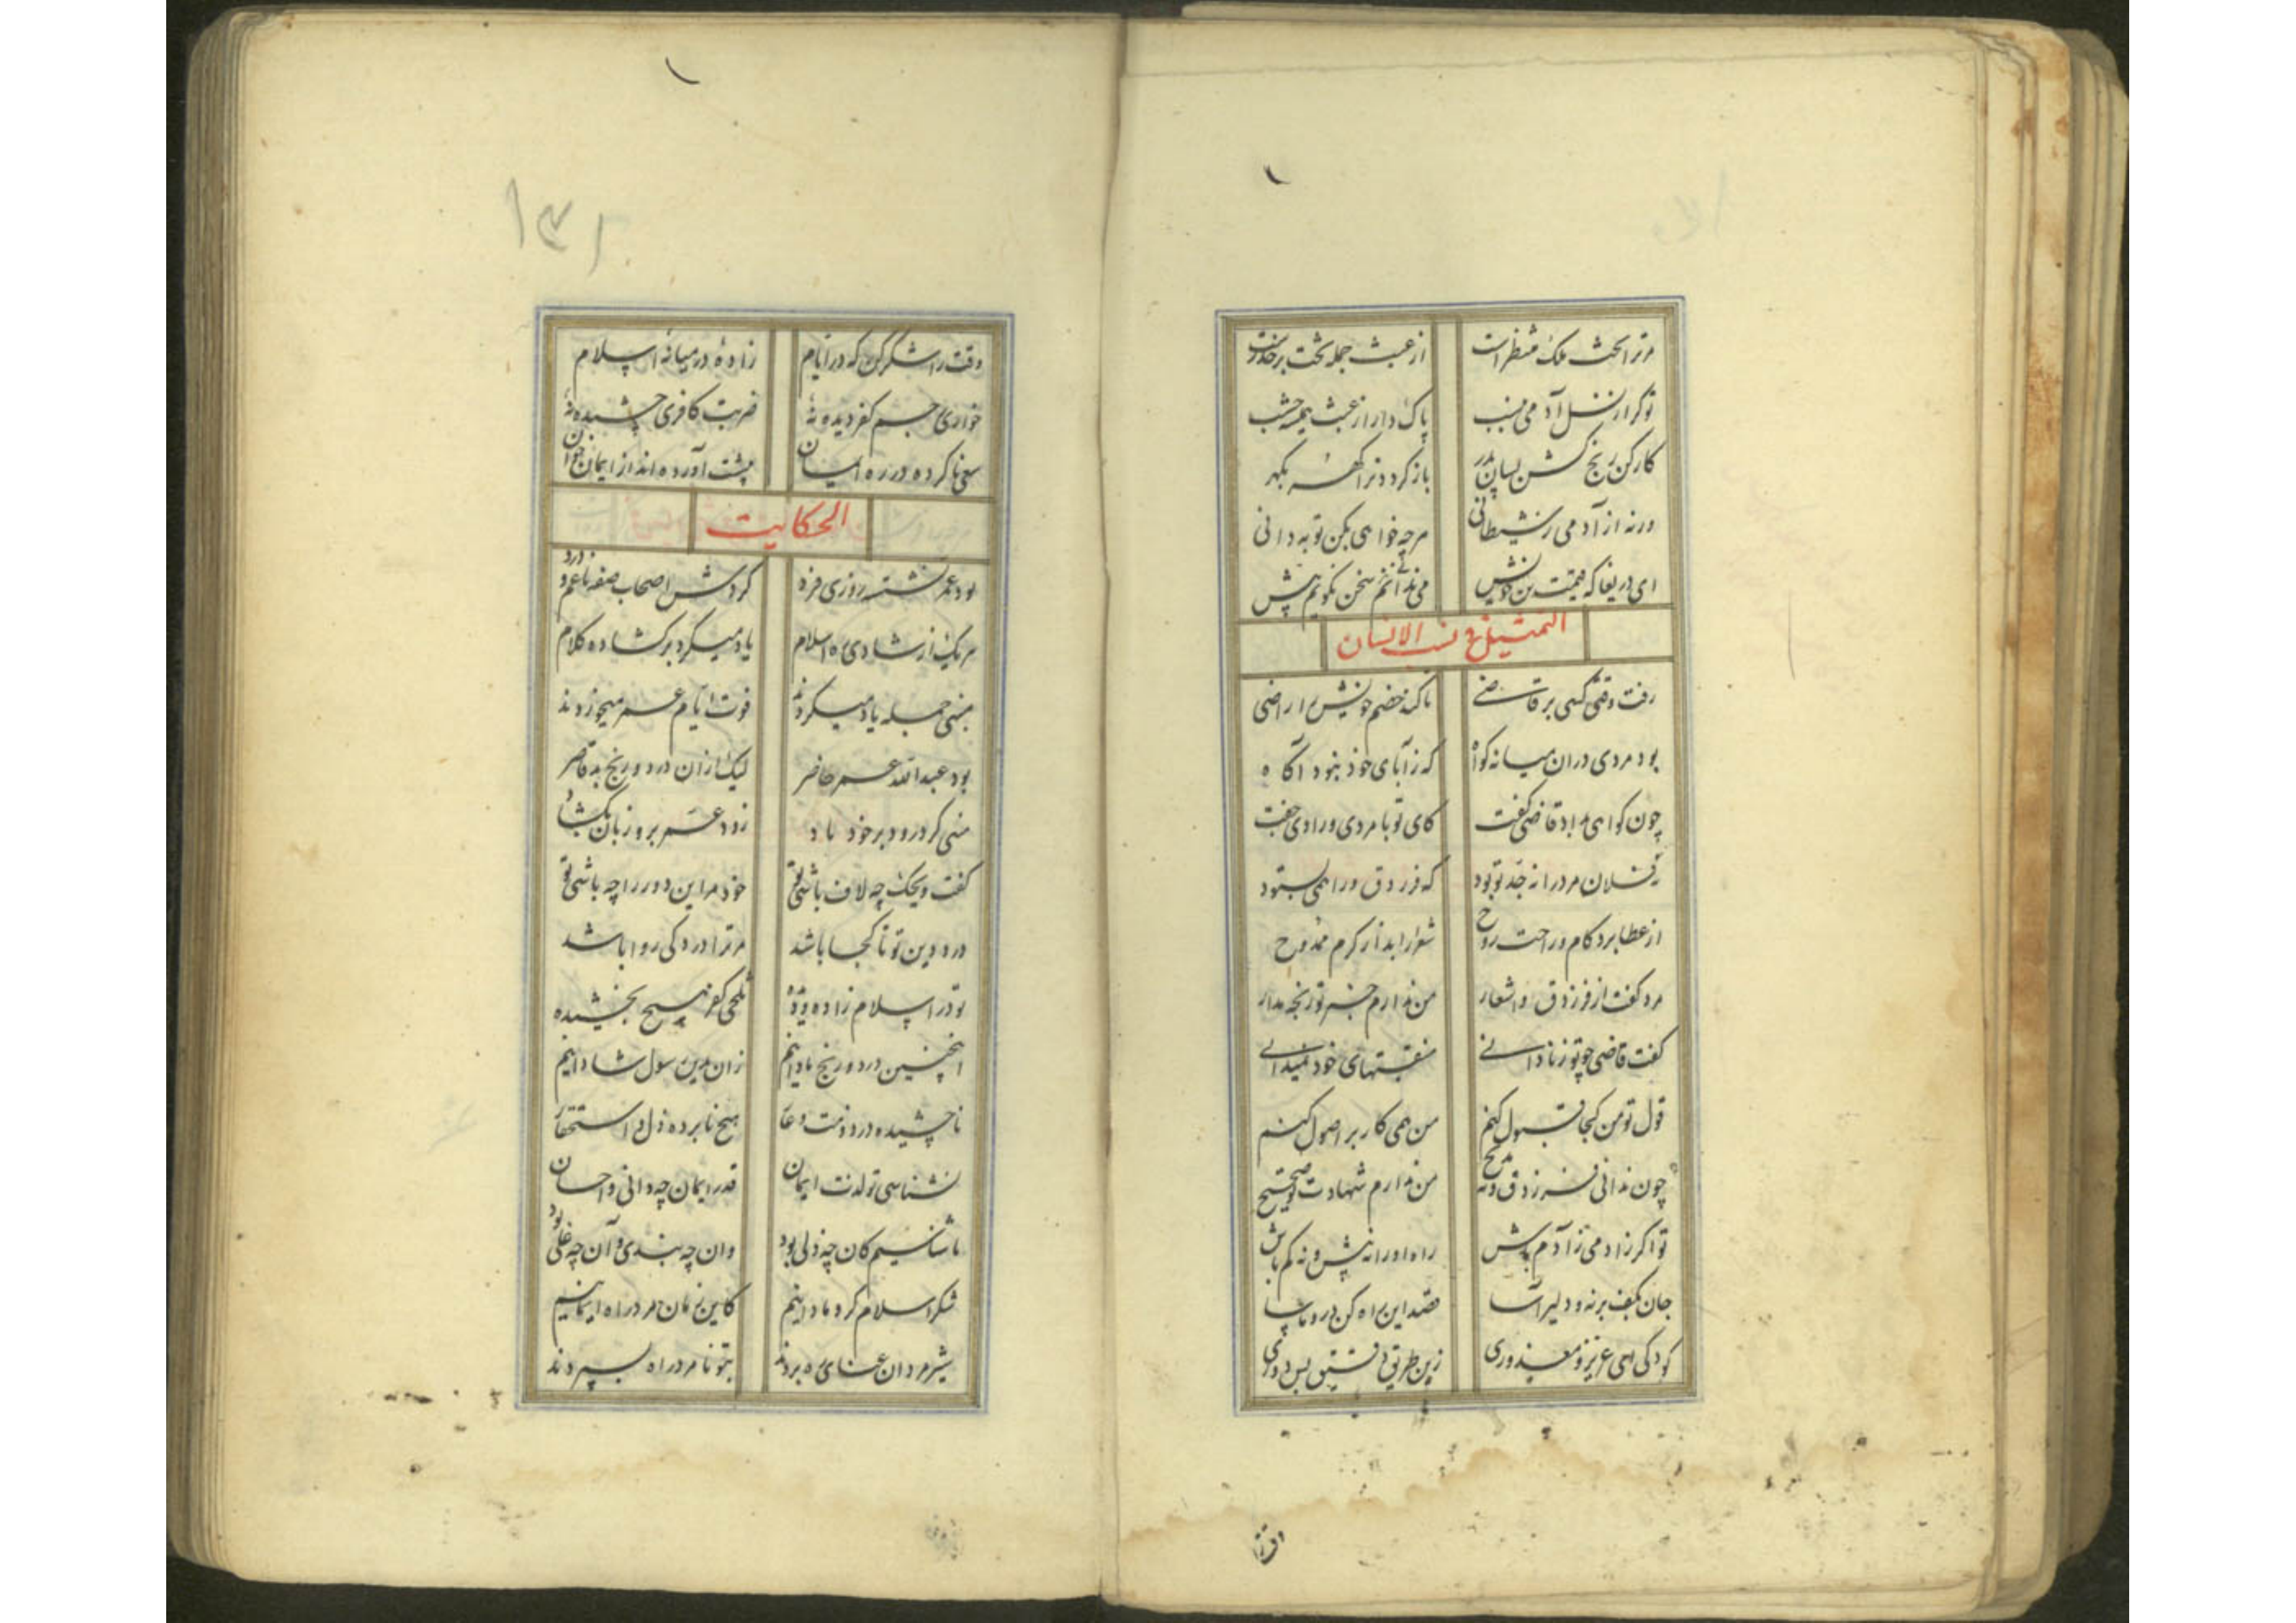 مرترا تخت ملک منتظر است
از عبث جمله تخت بر حذرست
تو گر از نسل آدمی منیب
پاک دار از عبث همیشه جیب
کار کن رنج کش بسان پدر
باز گرد و ترا
ورنه از آدمی ز شیطانی
هرچه خواهی بکن تو به دانی
ای دریغا که قیمت تن خویش
می ندانی سخن نگویم بیش
التمثیل فی نسب الانسان
رفت وقتی کسی بر قاضی
تا کند خصم خویش را راضی
بود مردی دران میانه گواه
که ز آبای خود نبود آگاه
چون گواهی بداد قاضی گفت
کای تو با مردی و رادی جفت
فلان مرد را نه جد تو بود
که فرزدق ورا همی بستود
از عطا برد کام و راحت روح
شعرا را بد از کرم ممدوح
مرد گفت از فرزدق و اشعار
من ندارم خبر تو رنجه مدار
گفت قاضی چو تو ز نادانی
منقبتهای خود نمیدانی
قول تو من کجا قبول کنم
من همی کار بر اصول کنم
چون ندانی فرزدق و نه مدیح
من ندارم شهادت تو صحیح
تو اگر زادمی ز آدم باش
راه او را نه بیش و نه کم باش
جان بکف برنه و دلیر آسا
قصد این راه کن درو ماسا
کودکی ای عزیز و معذوری
زین طریق دقیق بس دوری
وقت را
وقت را شکر کن که در ایام
زادهٔ در میانهٔ اسلام
خواری جسم کفر دیده نهٔ
ضربت کافری چشیده نهٔ
سعی ناکرده در ره ایمان
پیشت آورده‌اند از ایمان خوان
الحکایت
بود عمر نشسته روزی فرد
گردش اصحاب صفه با غم و درد
هر یک از شادی ره اسلام
یاد میکرد بر گشاده کلام
جمله یاد میکردند
فوت ایام عمر میخوردند
بود عبدالله عمر حاضر
لیک ازان درد و رنج بد قاصر
منی کرد و درد بر خود یاد
زود عمر برو زبان بگشاد
گفت ویحک چه لاف باشی تو
خود مر این درد را چه باشی تو
درد دین تو تا کجا باشد
مر ترا درد کی روا باشد
تو در اسلام زادهٔ
تلخی کفر هیچ نچشیده
اینچنین درد و رنج ما دانیم
زان بدین رسول شادانیم
ناچشیده درد
هیچ نابرده ذل و استحقار
نشناسی تو لذت ایمان
قدر ایمان چه دانی و احسان
ما شناسیم کان چه ذلی بود
وان چه بندی و آن چه غلی بود
شکر اسلام کرد ما دانیم
کاین زمان مرد راه ایمانیم
شیر مردان عنای ره بردند
بتو نامرد راه بسپردند